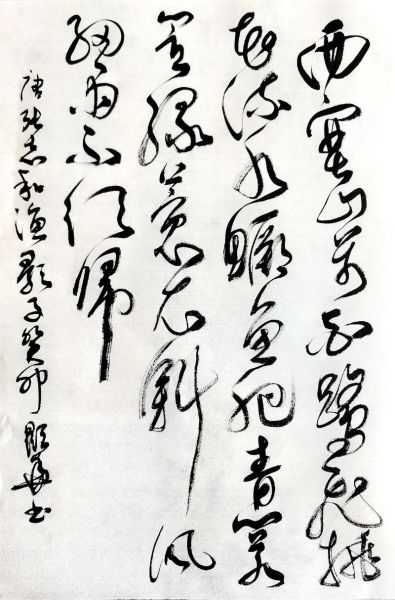 西塞山前白鹭飞桃
花流水鳜鱼肥青箬
笠绿蓑衣斜风
细雨不须归
唐张志和渔歌子癸卯书